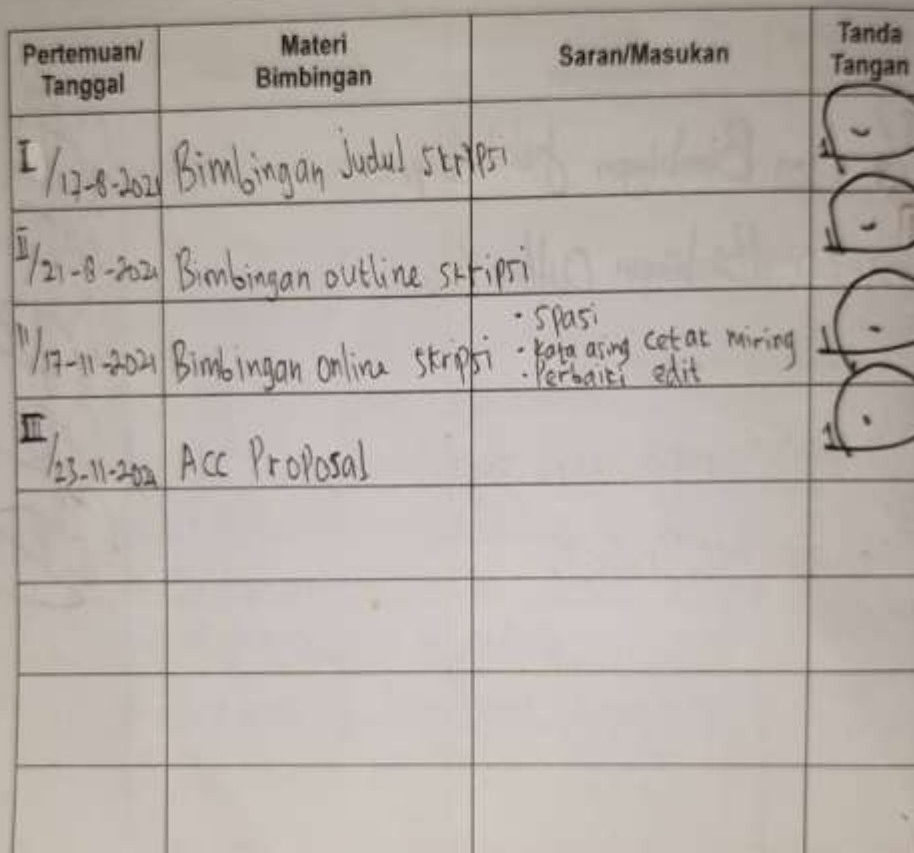 Pertemuan/ Tanggal
Materi Bimbingan
Saran/Masukan
Tanda Tangan
I /17-8-2021 Bimbingan Judul skripsi
II /21-8-2021 Bimbingan outline skripsi
II /17-11-2021 Bimbingan online skripsi
• Spasi
• kata asing cetak miring
• Perbaiki edit
III /23-11-2021 Acc Proposal